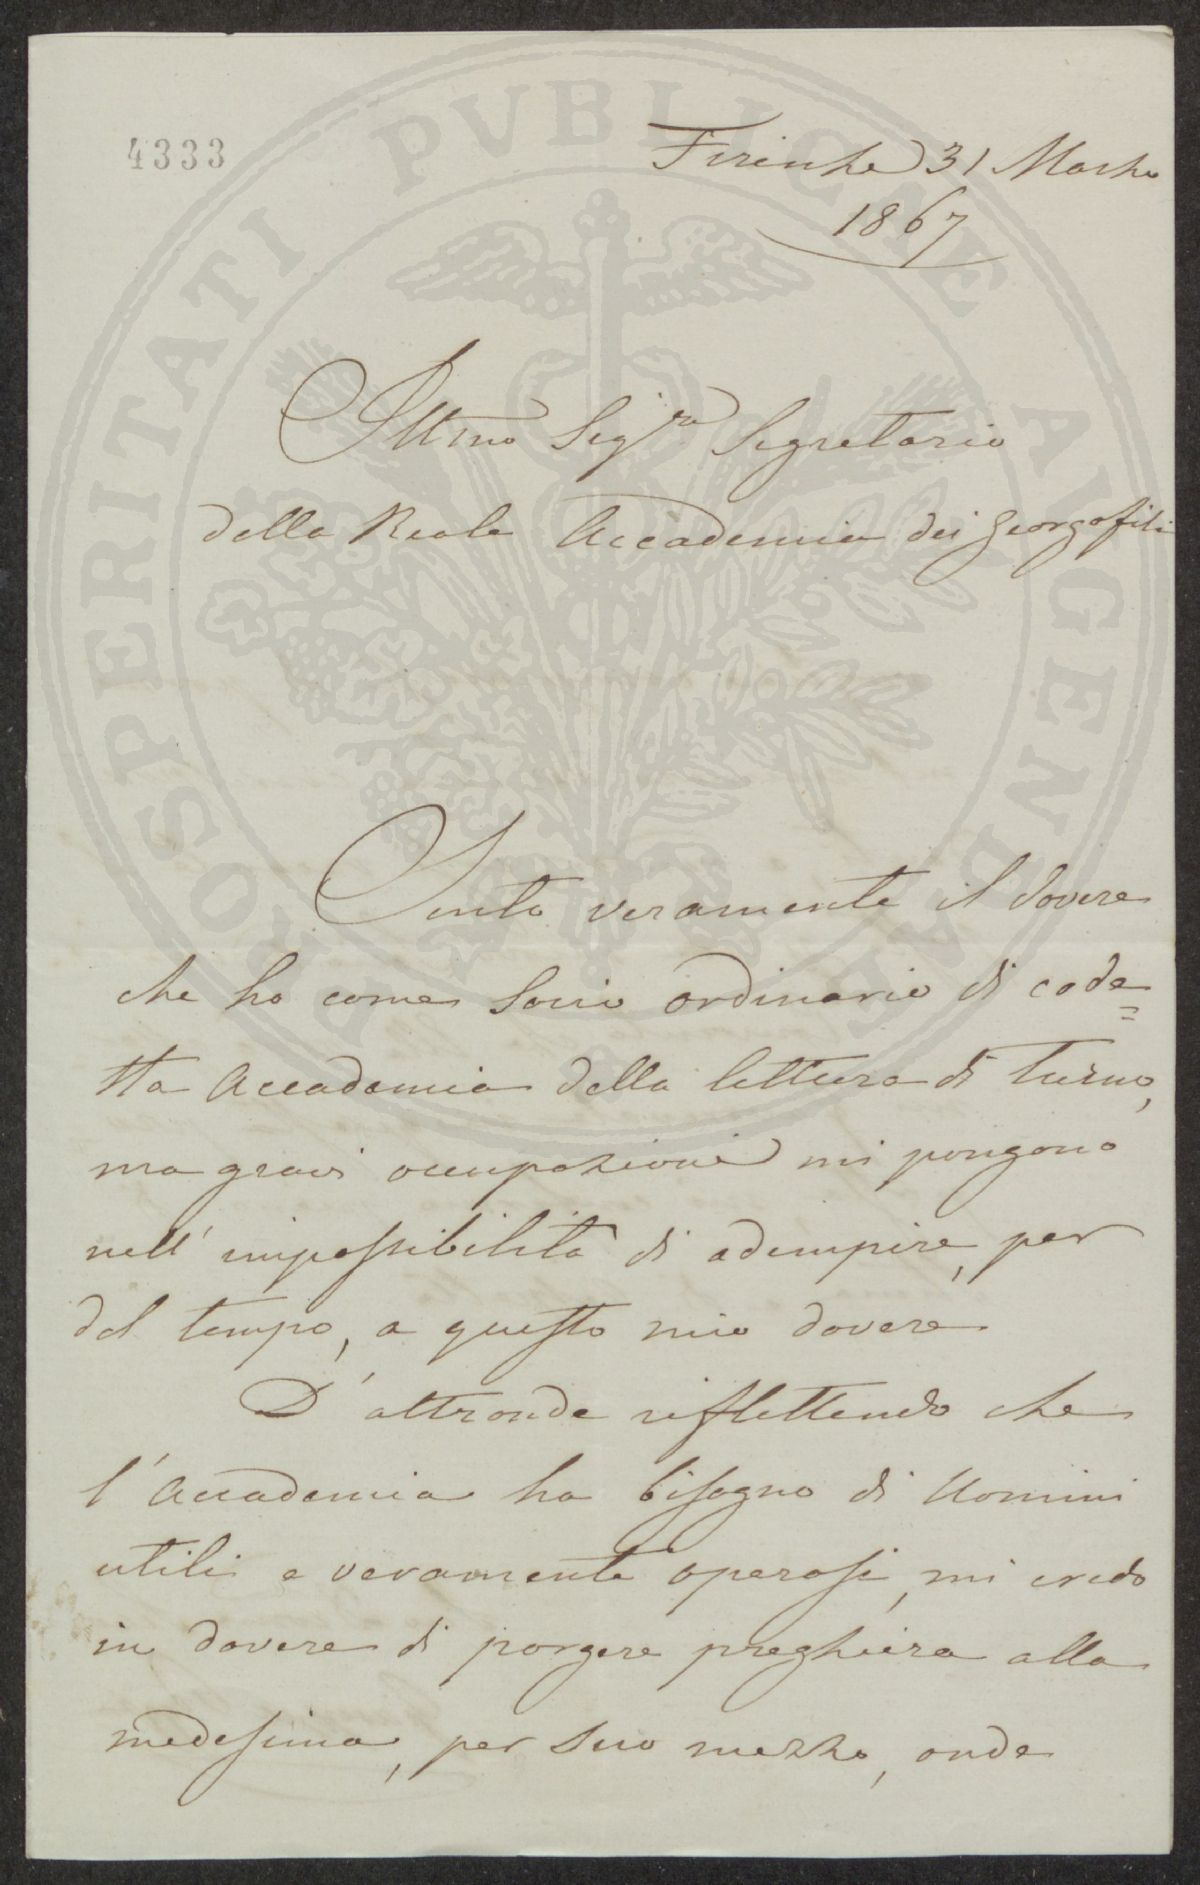 4333
Firenze 31 Marzo
1867
Illmo Sigre Segretario
della Reale Accademia dei Georgofili
Sento veramente il dovere
che ho come Socio ordinario di code=
sta Accademia della lettura di turno,
ma gravi occupazioni mi pongono
nell' impossibilità di adempire, per
del tempo, a questo mio dovere
D'altronde riflettendo che
l'Accademia ha bisogno di Uomini
utili e veramente operosi, mi credo
in dovere di porgere preghiera alla
medesima, per suo mezzo, onde
PROSPERITATI PVBLICAE AVGENDAE